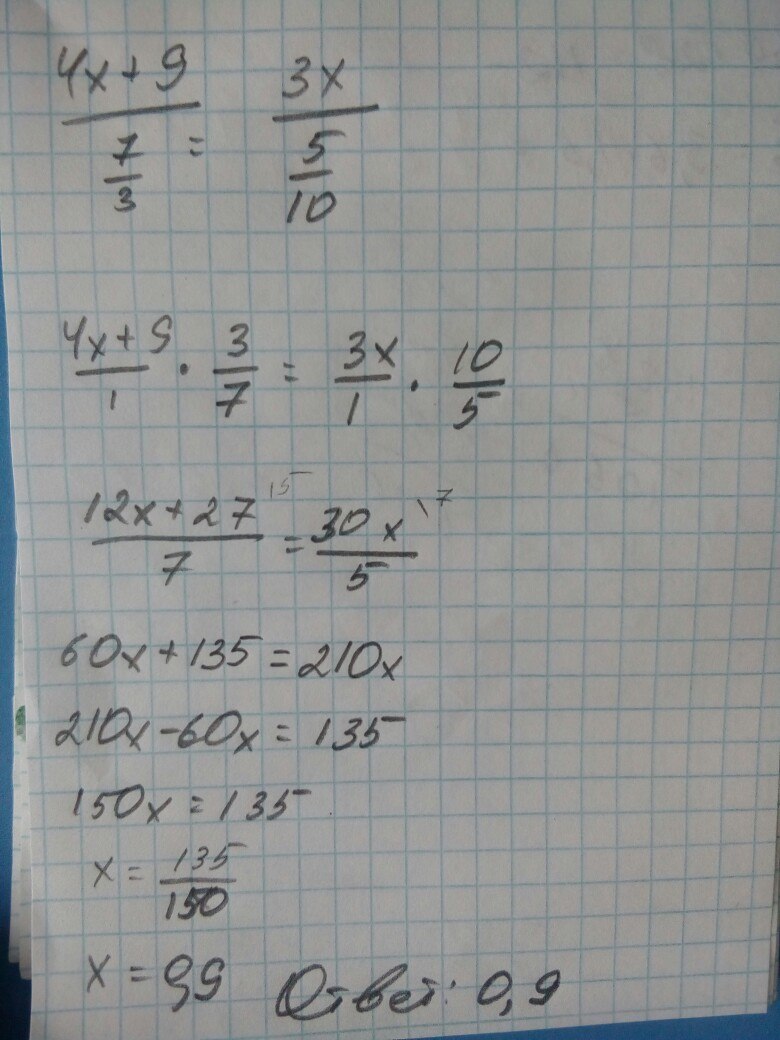 (4x+9)/(7/3) = 3x/(5/10)
(4x+9)/1 · 3/7 = 3x/1 · 10/5
(12x+27)/7 \5 = 30x/5 \7
60x+135=210x
210x-60x=135
150x=135
x=135/150
x=0,9 Ответ: 0,9